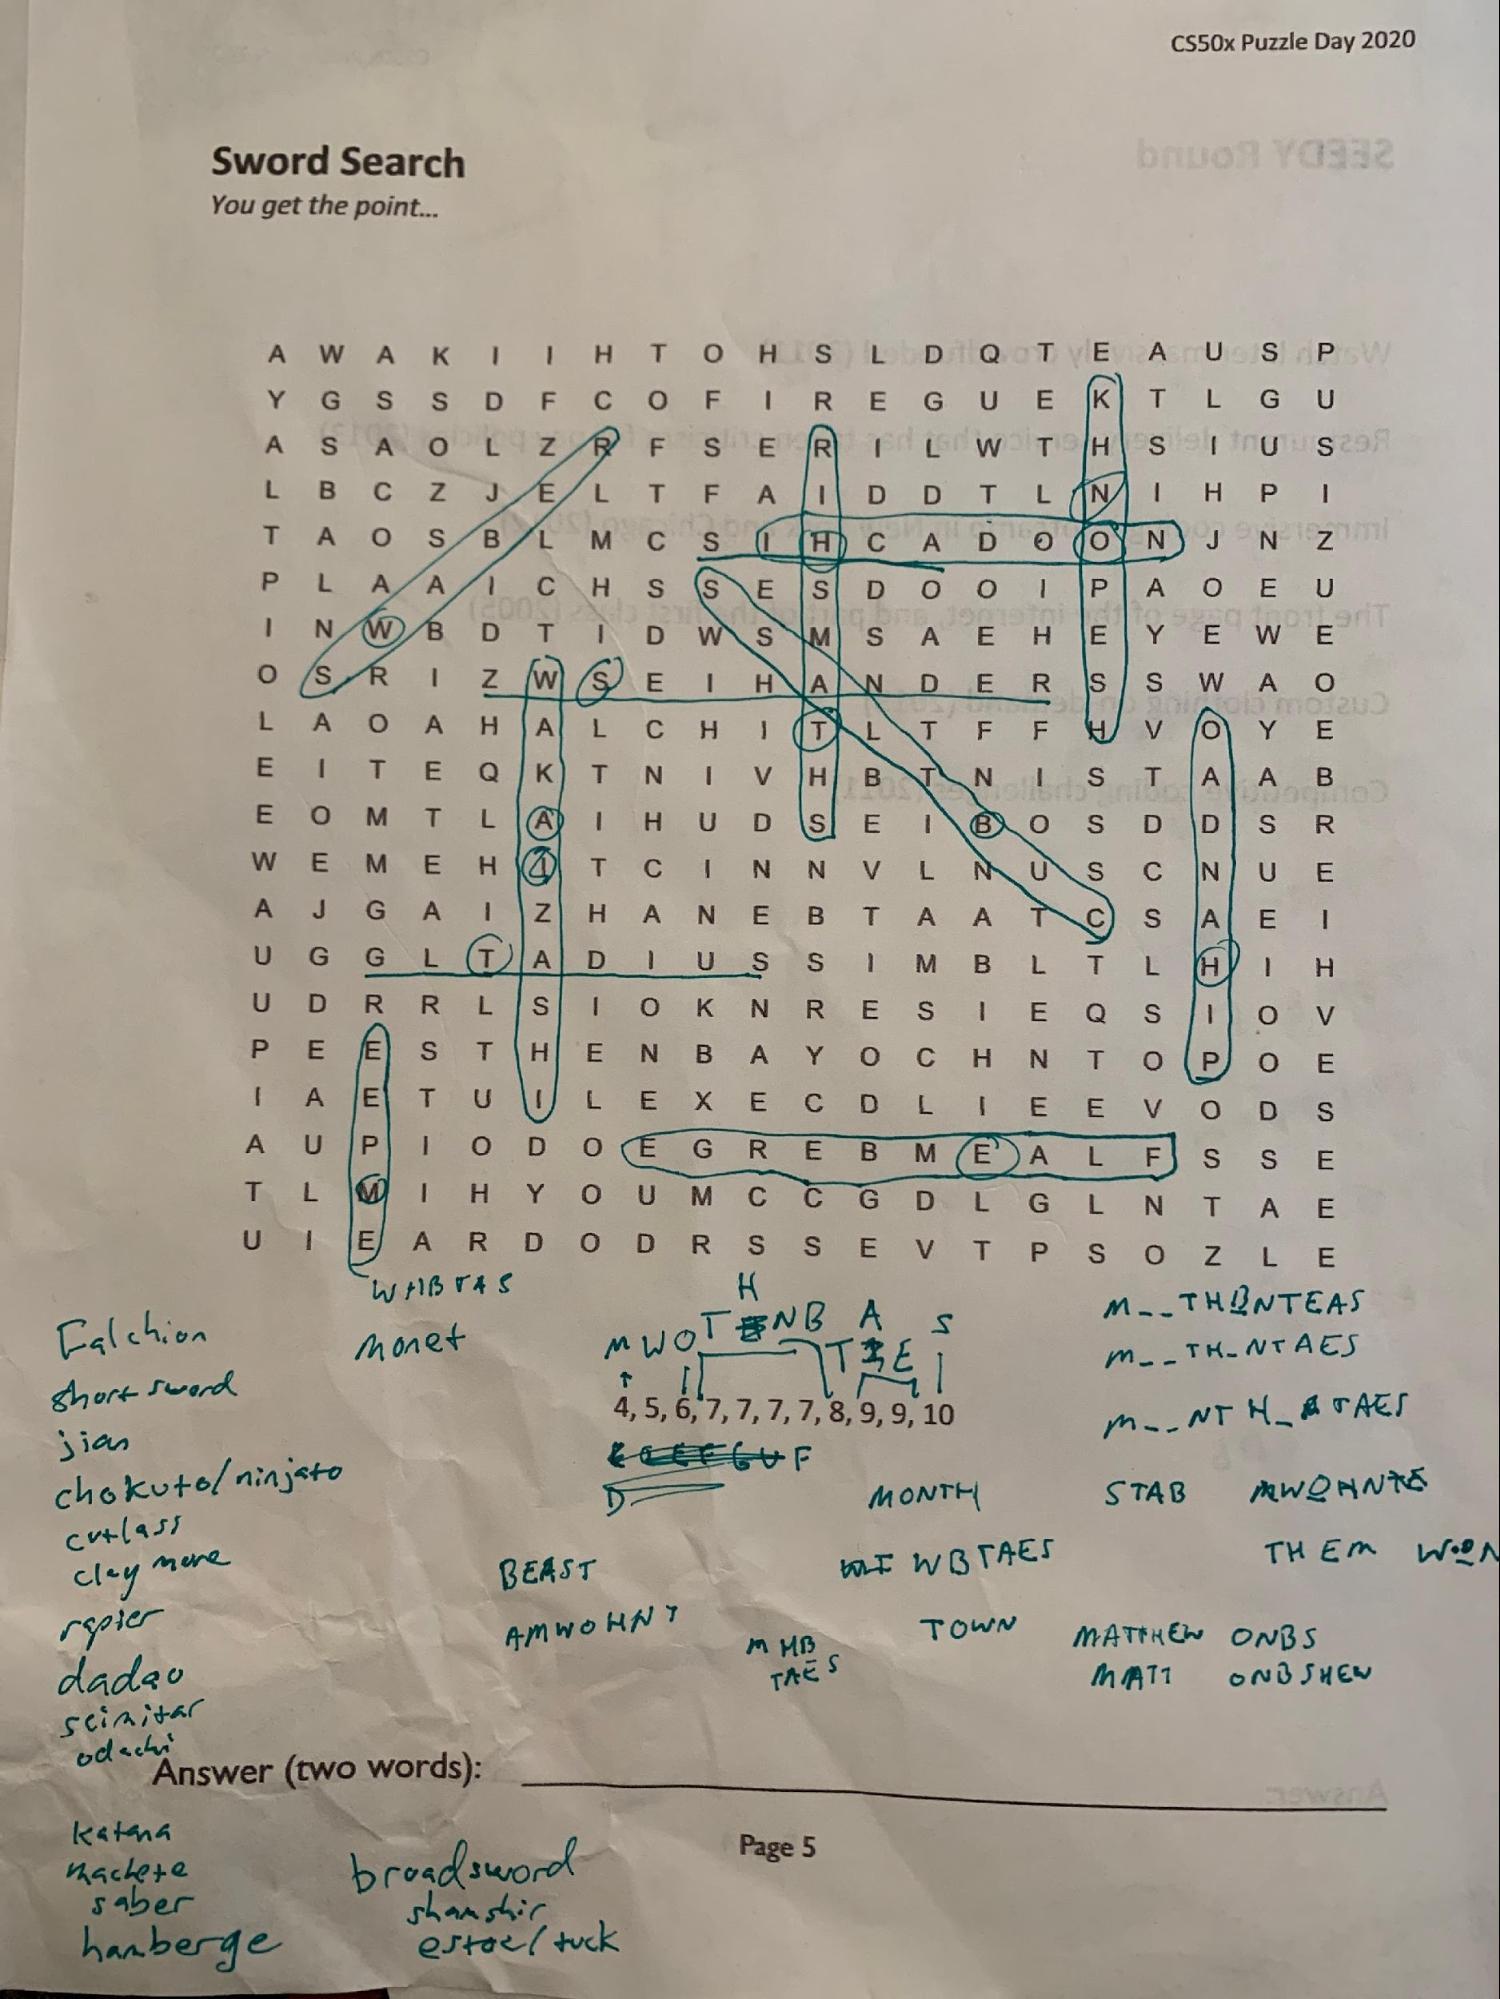 CS50x Puzzle Day 2020
SEEDY Round
Sword Search
You get the point...
A W A K I I H T O H S L D Q T E A U S P
Y G S S D F C O F I R E G U E K T L G U
A S A O L Z R F S E R I L W T H S I U S
L B C Z J E L T F A I D D T L N I H P I
T A O S B L M C S I H C A D O O N J N Z
P L A A I C H S S E S D O O I P A O E U
I N W B D T I D W S M S A E H E Y E W E
O S R I Z W S E I H A N D E R S S W A O
L A O A H A L C H I T L T F F H V O Y E
E I T E Q K T N I V H B T N I S T A A B
E O M T L A I H U D S E I B O S D D S R
W E M E H I T C I N N V L N U S C N U E
A J G A I Z H A N E B T A A T C S A E I
U G G L T A D I U S S I M B L T L H I H
U D R R L S I O K N R E S I E Q S I O V
P E E S T H E N B A Y O C H N T O P O E
I A E T U I L E X E C D L I E E V O D S
A U P I O D O E G R E B M E A L F S S E
T L M I H Y O U M C C G D L G L N T A E
U I E A R D O D R S S E V T P S O Z L E
WHBTAS
H
M__THBNTEAS
Falchion
monet
MWOT NB A S
T E
M__TH_NTAES
short sword
4, 5, 6, 7, 7, 7, 7, 8, 9, 9, 10
M__NT H_ TAES
jian
F
chokuto/ninjato
D
MONTH
STAB
cutlass
claymore
BEAST
WBTAES
THEM
rapier
AMWOHNT
TOWN
MATTHEW ONBS
M HB
TAES
MATT ONBSHEW
dadao
scimitar
odachi
Answer (two words):
Answer:
katana
Page 5
machete
broadsword
saber
shamshir
hamberge
estoc/tuck